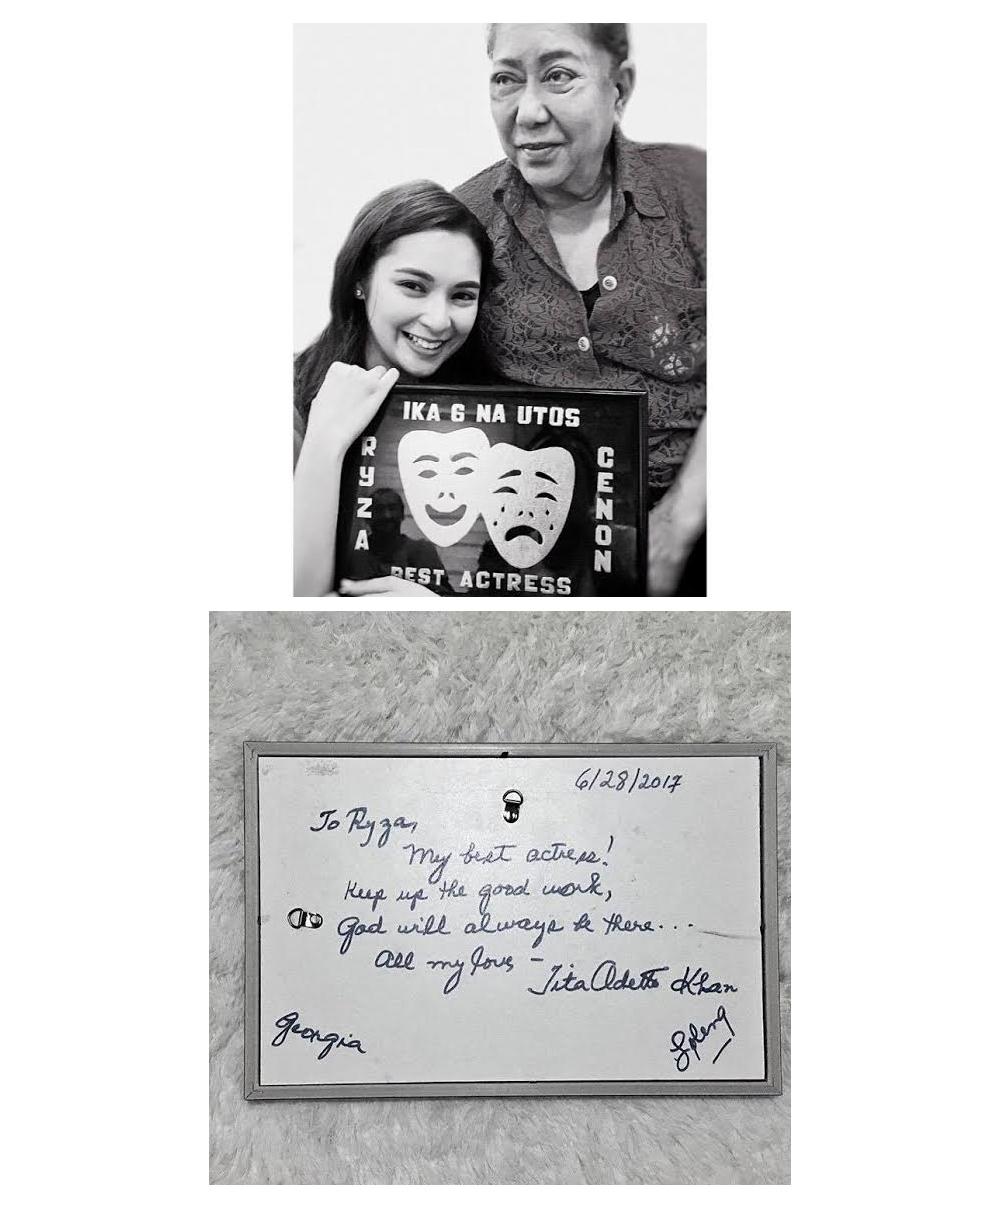 IKA 6 NA UTOS
RYZA
CENON
BEST ACTRESS
6/28/2017
To Ryza,
My best actress!
Keep up the good work,
God will always be there...
All my love -
Tita Odette Khan
Georgia
Loleng